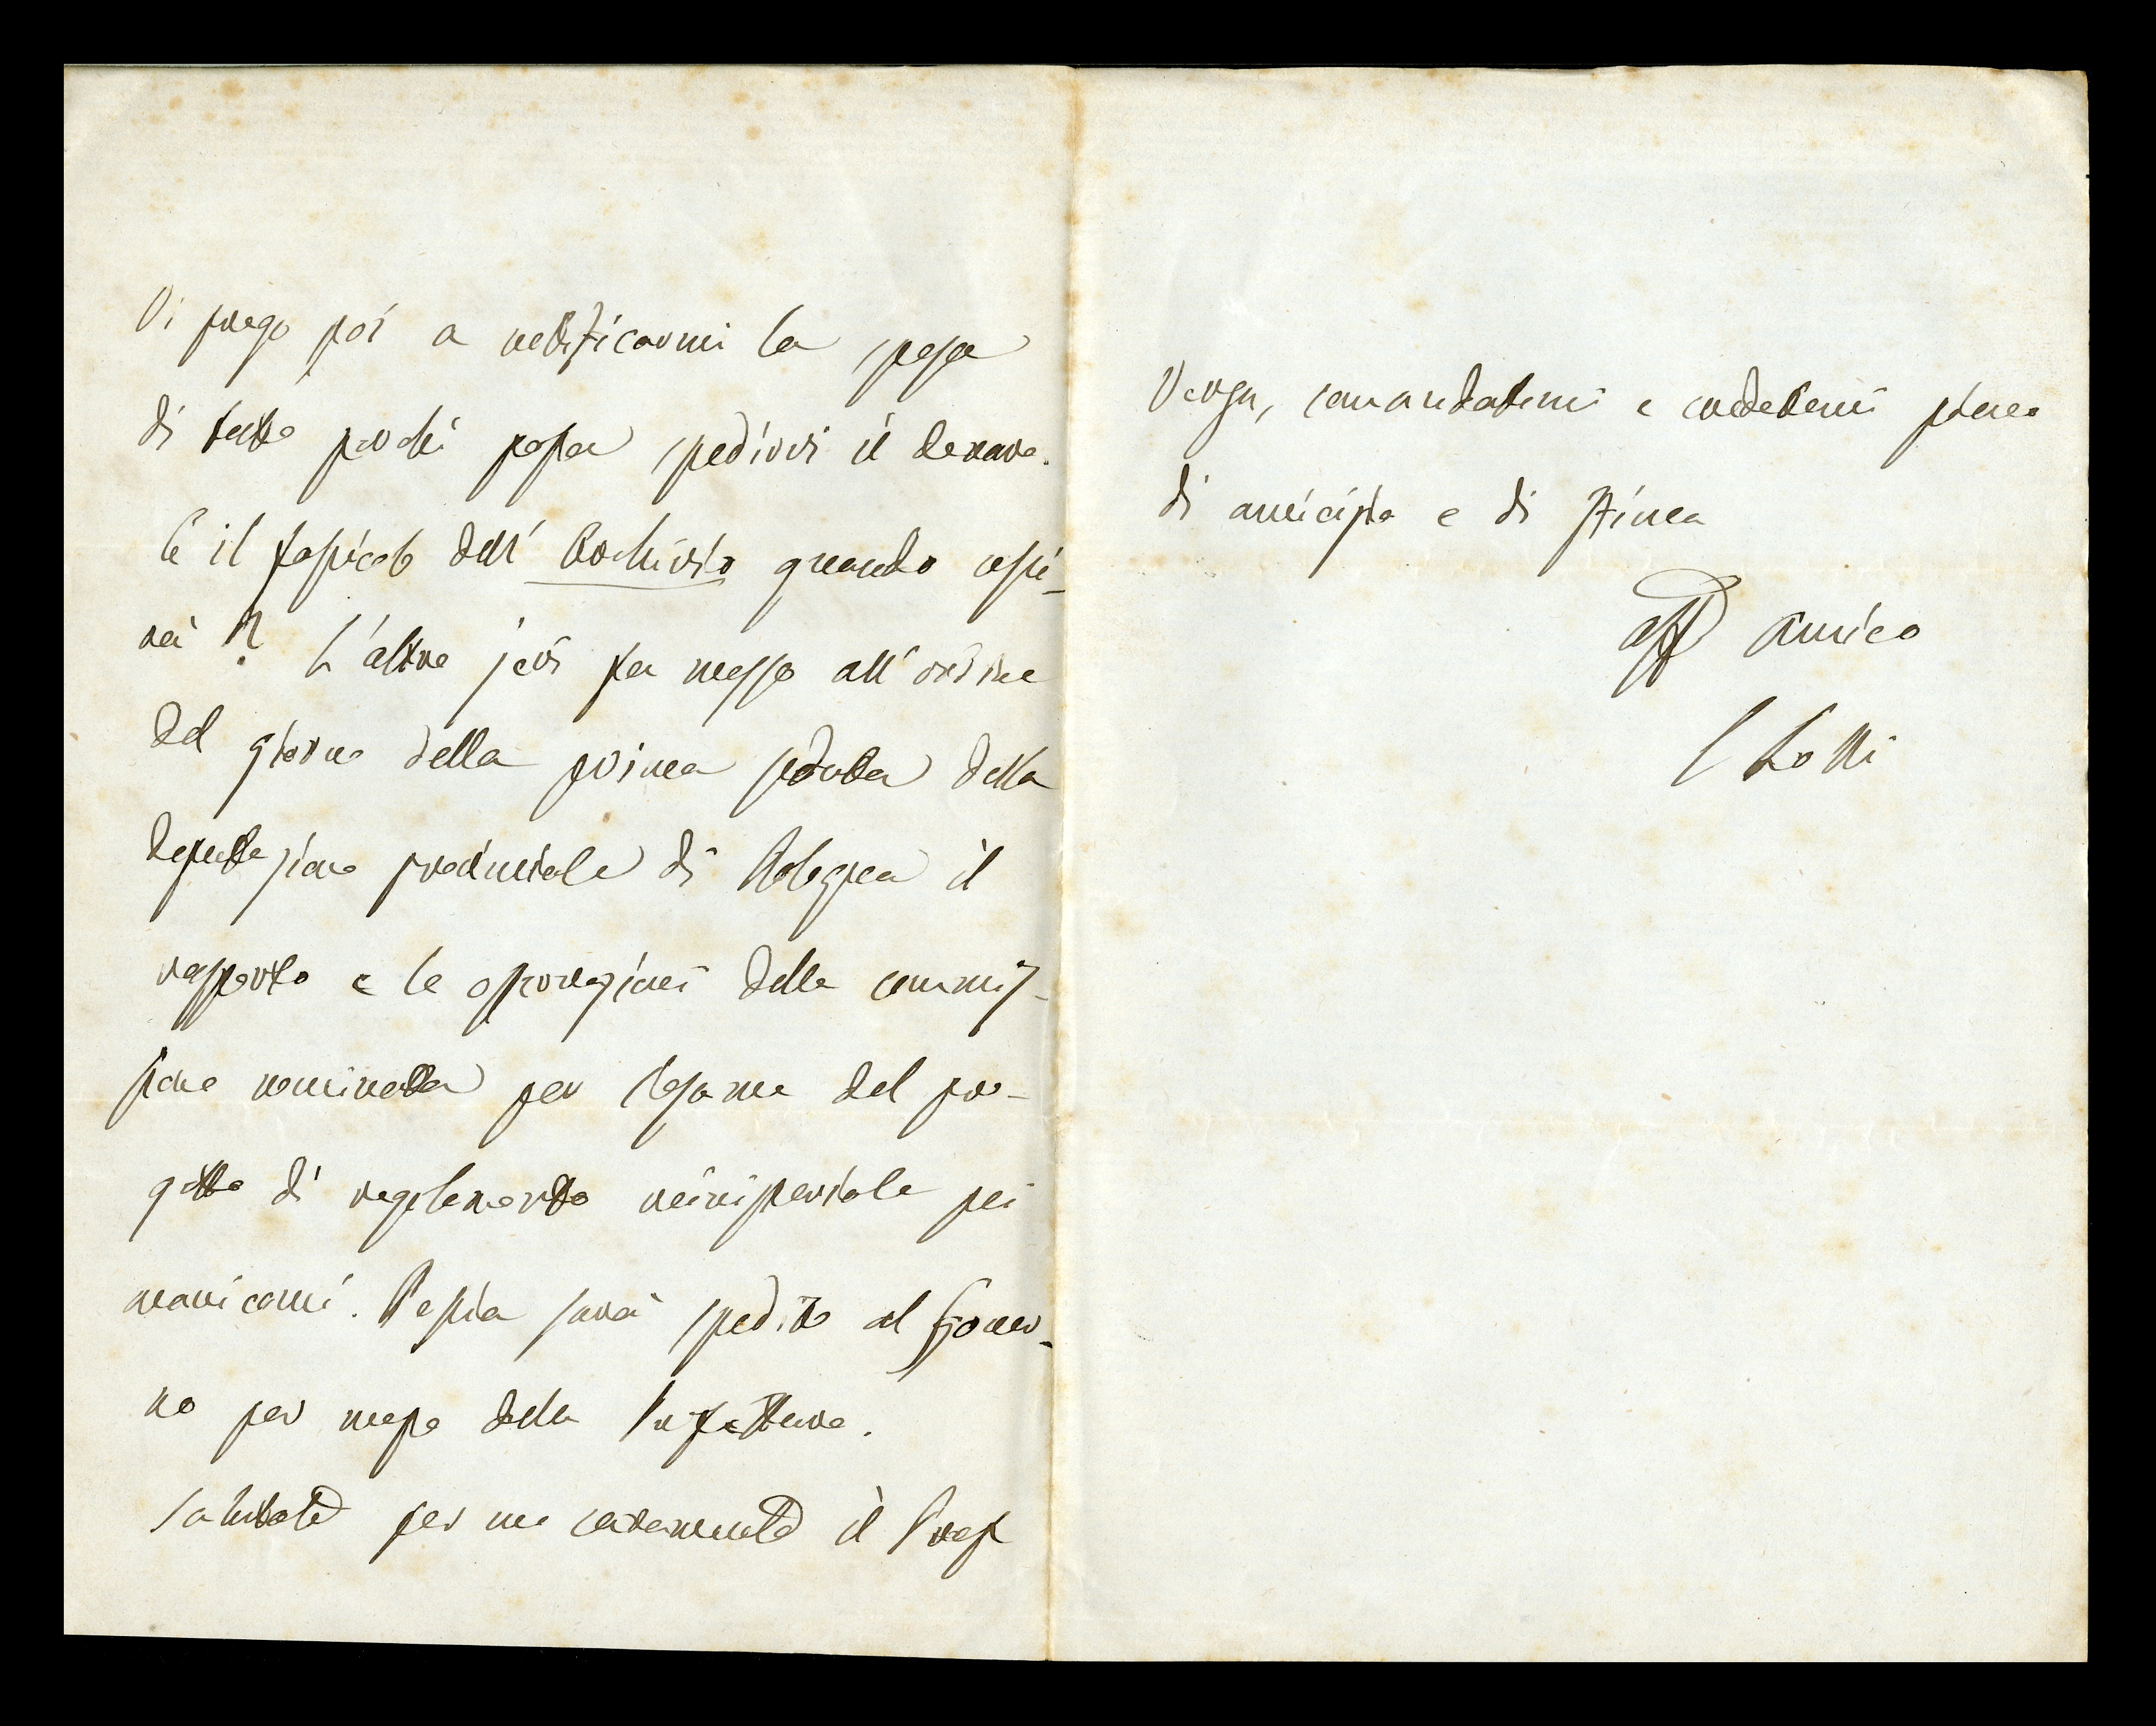 Vi prego poi a notificarmi la spesa
di tutto perchè possa spedirvi il denaro.
E il fascicolo dell' Archivio quando usci-
rà? L'altro jeri fu messo all'ordine
del giorno della prima seduta della
deputazione provinciale di Bologna il
rapporto e le osservazioni della commis-
sione nominata per l'esame del pro-
getto di regolamento ministeriale pei
manicomi. Poscia sarà spedito al Gover-
no per mezzo della Prefettura.
Salutate per me caramente il Prof
Verga, comandatemi e credetemi pieno
di amicizia e di stima
aff amico
Lolli